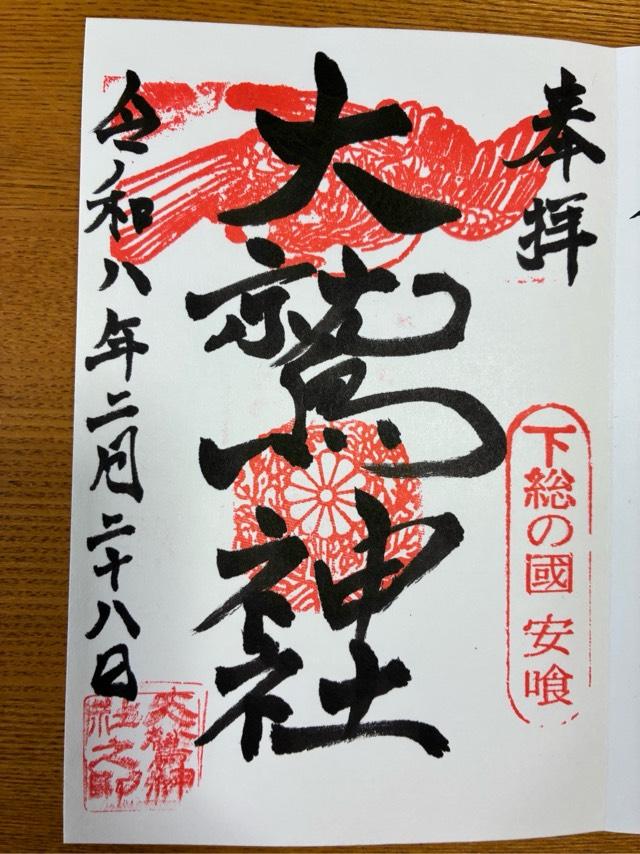 奉拝
下総の國 安喰
大鷲神社
令和八年二月二十八日
大鷲神
社之印